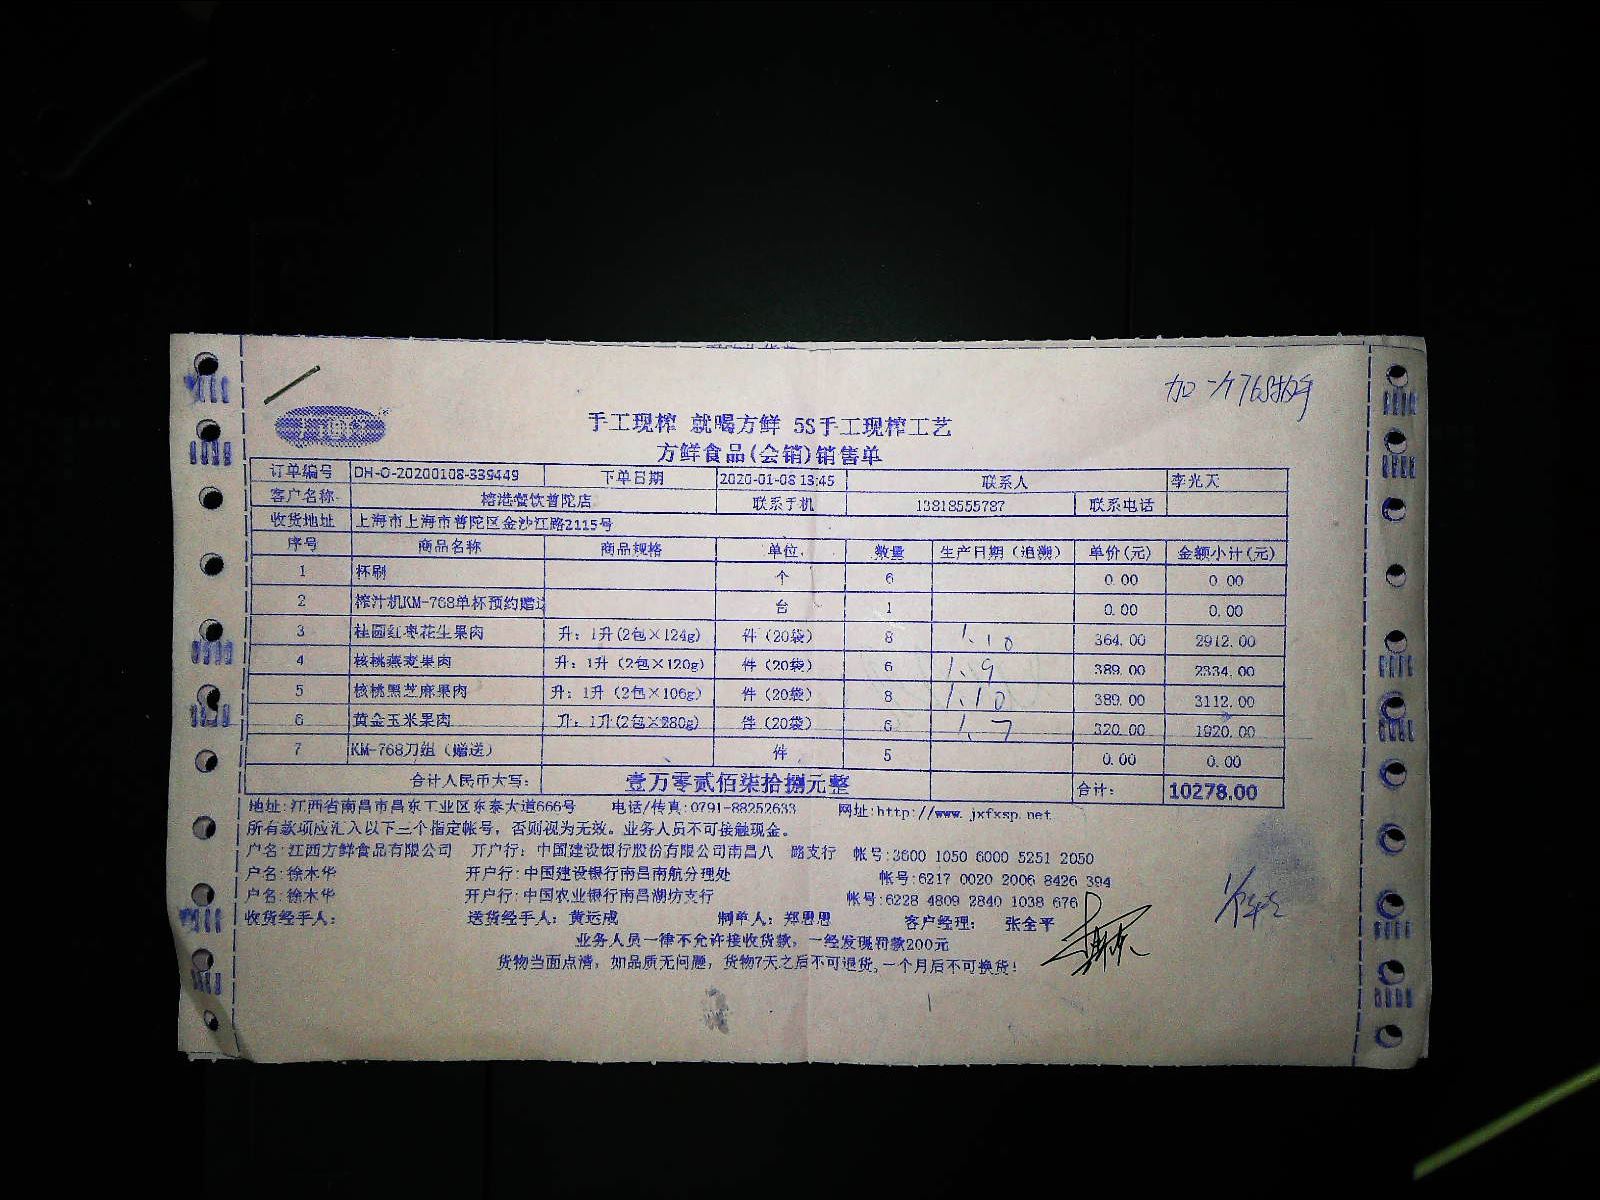 手工现榨 就喝方鲜 5S手工现榨工艺
方鲜食品(会销)销售单
订单编号 DH-O-20200108-339449 下单日期 2020-01-08 13:45 联系人 李光天
客户名称 榕港餐饮普陀店 联系手机 13818555787 联系电话
收货地址 上海市上海市普陀区金沙江路2115号
序号 商品名称 商品规格 单位 数量 生产日期（追溯） 单价(元) 金额小计(元)
1 杯刷 个 6 0.00 0.00
2 榨汁机KM-768单杯预约赠送 台 1 0.00 0.00
3 桂圆红枣花生果肉 升：1升(2包×124g) 件（20袋） 8 1.10 364.00 2912.00
4 核桃燕麦果肉 升：1升（2包×120g） 件（20袋） 6 1.9 389.00 2334.00
5 核桃黑芝麻果肉 升：1升（2包×106g） 件（20袋） 8 1.10 389.00 3112.00
6 黄金玉米果肉 升：1升(2包×280g) 件（20袋） 6 1.7 320.00 1920.00
7 KM-768刀组（赠送） 件 5 0.00 0.00
合计人民币大写： 壹万零贰佰柒拾捌元整 合计： 10278.00
地址:江西省南昌市昌东工业区东泰大道666号 电话/传真:0791-88252633 网址:http://www.jxfxsp.net
所有款项应汇入以下三个指定帐号，否则视为无效。业务人员不可接触现金。
户名:江西方鲜食品有限公司 开户行：中国建设银行股份有限公司南昌八一路支行 帐号:3600 1050 6000 5251 2050
户名:徐木华 开户行:中国建设银行南昌南航分理处 帐号:6217 0020 2006 8426 394
户名:徐木华 开户行:中国农业银行南昌湖坊支行 帐号:6228 4809 2840 1038 676
收货经手人： 送货经手人：黄远成 制单人：郑恩恩 客户经理： 张全平
业务人员一律不允许接收货款，一经发现罚款200元
货物当面点清，如品质无问题，货物7天之后不可退货,一个月后不可换货！